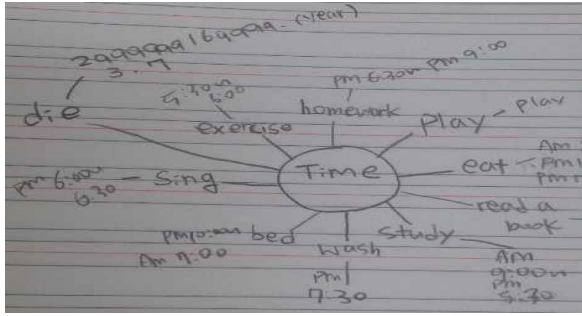 2999999169999. (year)
3.7
die
5:30~
6:00
exercise
pm 6:30~ pm 9:00
homework
Play - play
Time
eat
Am
pm
pm
read a
book
study
Am
9:00~
pm
5:30
wash
pm
7:30
bed
pm10:00~
Am 7:00
Sing
pm 6:00~
6:30